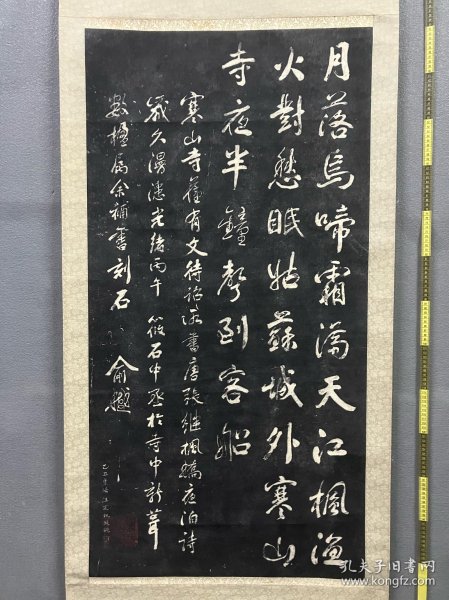 月落烏啼霜滿天江楓漁
火對愁眠姑蘇城外寒山
寺夜半鐘聲到客船
寒山寺舊有文待詔所書唐張繼楓橋夜泊詩
歲久漫漶光緒丙午筱石中丞於寺中新葺
數楹屬余補書刻石 俞樾
孔夫子旧书网
kongfz.com